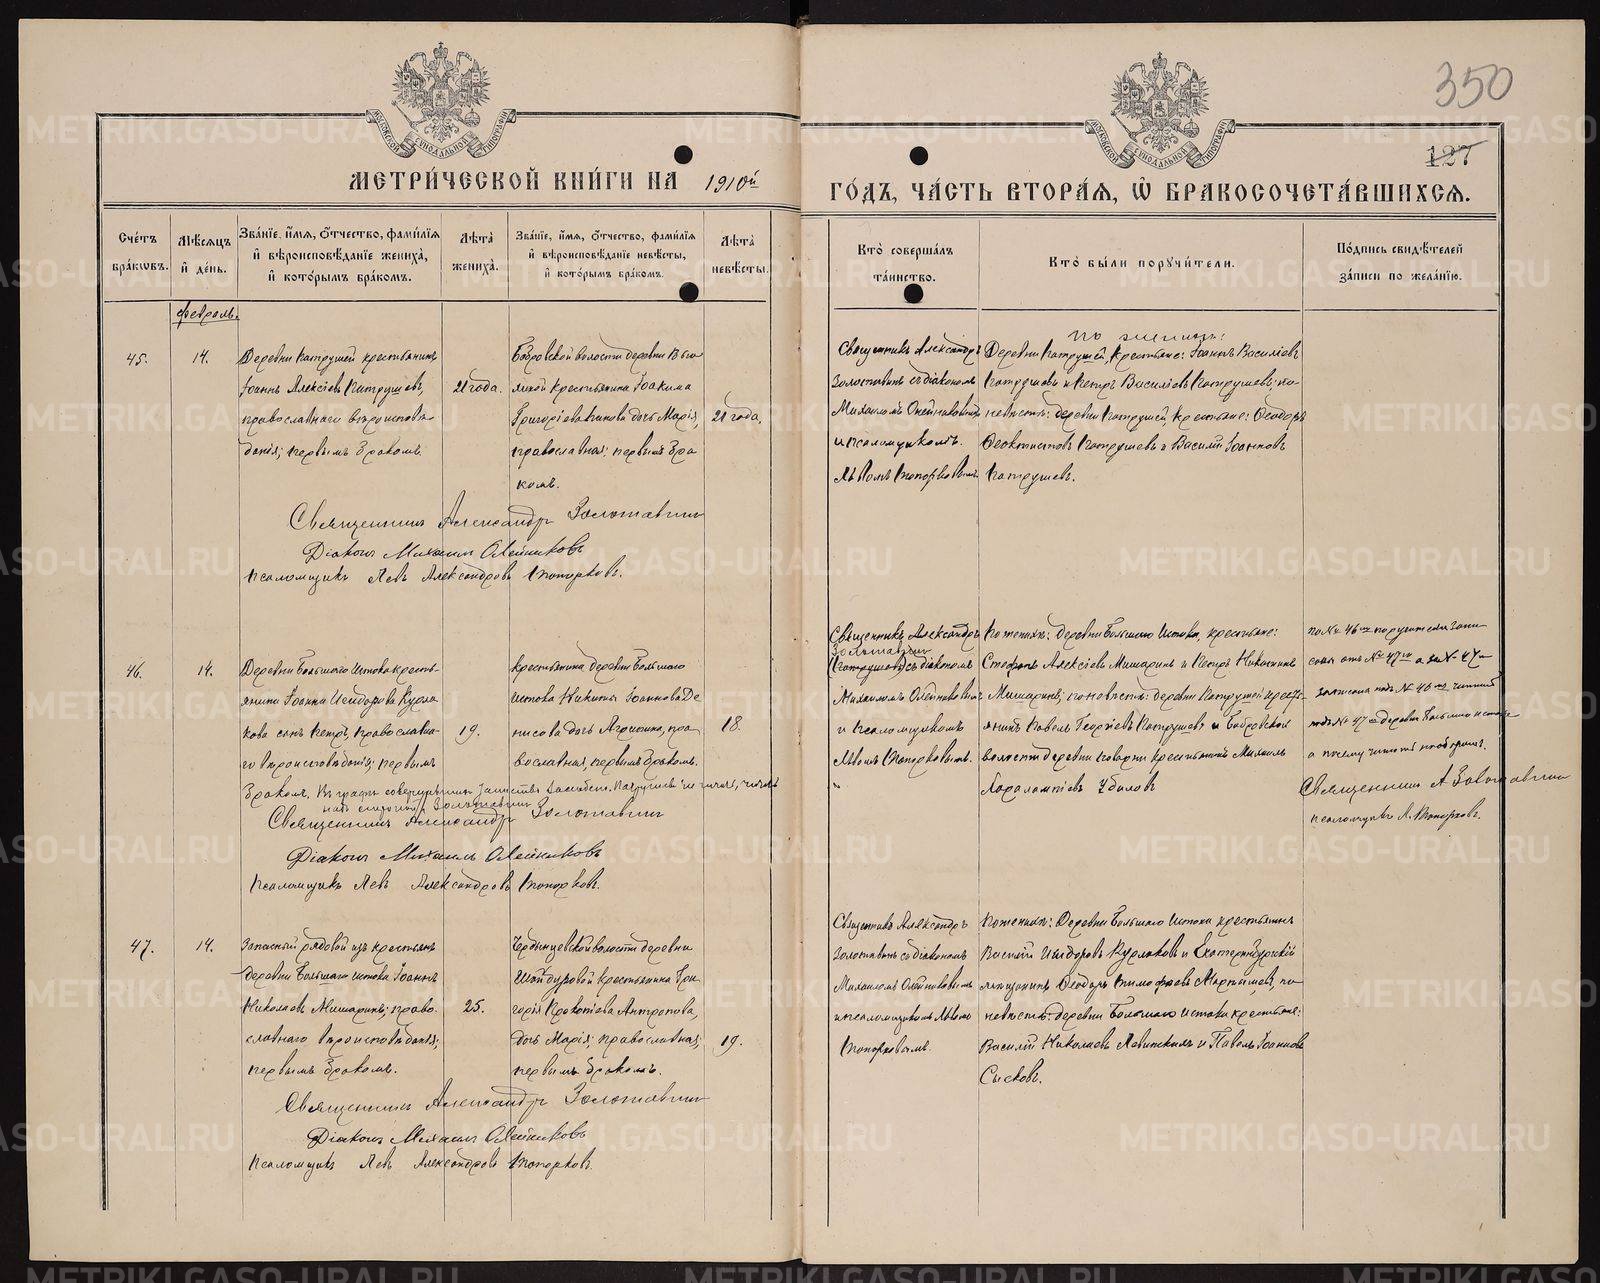 350
127
МОСКОВСКОЙ СѴНОДАЛЬНОЙ ТИПОГРАФІИ
МОСКОВСКОЙ СѴНОДАЛЬНОЙ ТИПОГРАФІИ
МЕТРИ́ЧЕСКОЙ КНИ́ГИ НА 1910й
ГО́ДЪ, ЧА́СТЬ ВТОРА́Я, Ѡ҆ БРАКОСОЧЕТА́ВШИХСЯ.
Сче́тъ бра́кѡвъ.
Мѣ́сяцъ и҆ де́нь.
Зва́нїе, и҆́мя, ѻ҆́тчество, фами́лїя и҆ вѣроисповѣ́данїе жениха̀, и҆ кото́рымъ бра́комъ.
Лѣ̀та жениха̀.
Зва́нїе, и҆́мя, ѻ҆́тчество, фами́лїя и҆ вѣроисповѣ́данїе невѣ́сты, и҆ кото́рымъ бра́комъ.
Лѣ̀та невѣ́сты.
Кто̀ соверша́лъ та́инство.
Кто̀ бы́ли поручи́тели.
По́дпись свидѣ́телей за́писи по жела́нїю.
Февраль.
45.
14.
Деревни Патрушей крестьянинъ
Іоаннъ Алексіевъ Патрушевъ,
православнаго вѣроисповѣ-
данія; первымъ бракомъ.
21 года.
Бобровской волости деревни
крестьянина Іоакима
Григоріева дочь Марія,
православная; первымъ бра-
комъ.
21 года.
Священникъ Александръ
Золотавинъ съ діакономъ
Михаиломъ Олейниковымъ
и псаломщикомъ
Львомъ Топорковымъ.
по женихѣ:
Деревни Патрушей, крестьяне: Іоаннъ Василіевъ
Патрушевъ и Петръ Василіевъ Патрушевъ; по
невѣстѣ: деревни Патрушей, крестьяне: Ѳеодоръ
Ѳеоктистовъ Патрушевъ и Василій Іоанновъ
Патрушевъ.
Священникъ Александръ Золотавинъ
Діаконъ Михаилъ Олейниковъ
Псаломщикъ Левъ Александровъ Топорковъ.
46.
14.
Деревни Большаго Истока кресть-
янина Іоанна Исидорова Курла-
кова сынъ Петръ, православна-
го вѣроисповѣданія; первымъ
бракомъ. Въ графѣ совершившихъ таинство
надъ строкой Золотавинъ
19.
крестьянина деревни Большаго
Истока Никиты Іоаннова Де-
нисова дочь Агрипина, пра-
вославная, первымъ бракомъ.
18.
Священникъ Александръ
Золотавинъ
(Патрушевъ) съ діакономъ
Михаиломъ Олейниковымъ
и псаломщикомъ
Львомъ Топорковымъ.
По женихѣ: деревни Большаго Истока, крестьяне:
Стефанъ Алексіевъ Мишаринъ и Петръ Никитинъ
Мишаринъ; по невѣстѣ: деревни Патрушей крестья-
янинъ Павелъ Георгіевъ Патрушевъ и Бобровской
волости деревни крестьянинъ Михаилъ
Харалампіевъ
по № 46му поручители запи-
саны отъ № 47го а за № 47й
записана подъ № 46мъ
подъ № 47мъ деревни Большаго Истока
а почему читать наоборотъ.
Священникъ А Золотавинъ
псаломщикъ Л. Топорковъ.
Священникъ Александръ Золотавинъ
Діаконъ Михаилъ Олейниковъ
Псаломщикъ Левъ Александровъ Топорковъ.
47.
14.
Запасный рядовой изъ крестьянъ
деревни Большаго Истока Іоаннъ
Николаевъ Мишаринъ; право-
славнаго вѣроисповѣданія;
первымъ бракомъ.
25.
волости деревни
крестьянина Гри-
горія Прокопіева Антропова,
дочь Марія; православная;
первымъ бракомъ.
19.
Священникъ Александръ
Золотавинъ съ діакономъ
Михаиломъ Олейниковымъ
и псаломщикомъ Львомъ
Топорковымъ.
По женихѣ: Деревни Большаго Истока крестьянинъ
Василій Исидоровъ Курлаковъ и Екатеринбургскій
мѣщанинъ Ѳеодоръ Тимофеевъ Мартышевъ, по
невѣстѣ: деревни Большаго Истока крестьяне:
Василій Николаевъ и Павелъ Іоанновъ
Сысковъ.
Священникъ Александръ Золотавинъ
Діаконъ Михаилъ Олейниковъ
Псаломщикъ Левъ Александровъ Топорковъ.
METRIKI.GASO-URAL.RU